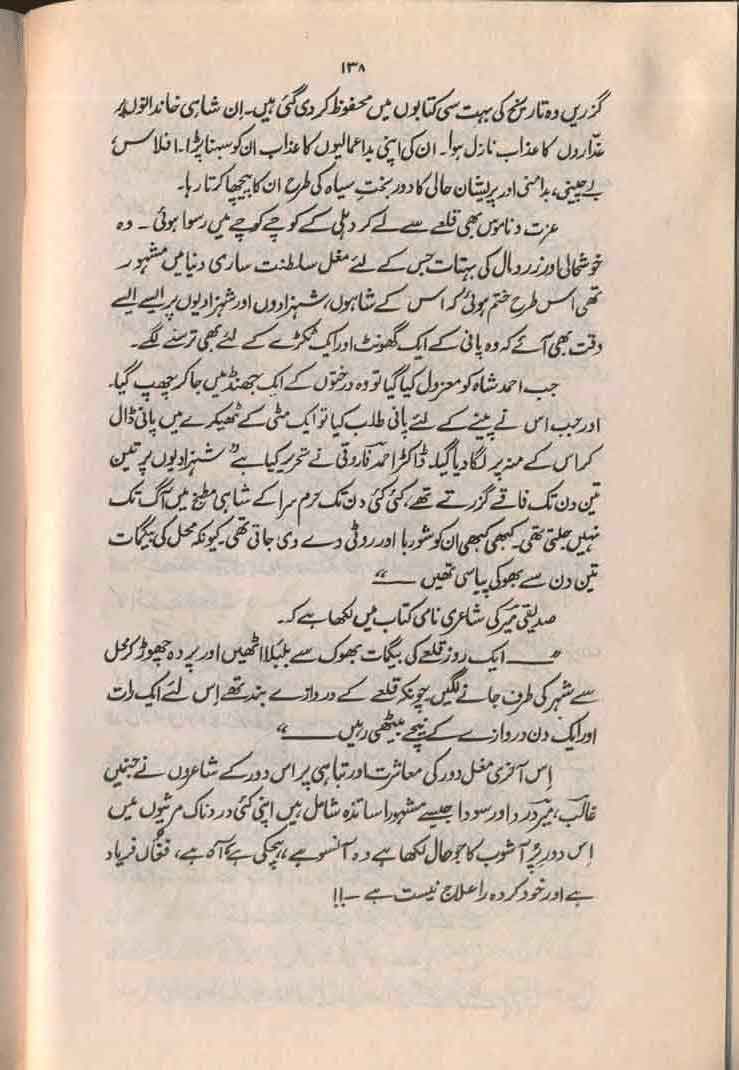 ۱۳۸
گزریں وہ تاریخ کی بہت سی کتابوں میں محفوظ کر دی گئی ہیں۔ اِن شاہی خاندانوں پر
غدّاروں کا عذاب نازل ہوا۔ ان کی اپنی بداعمالیوں کا عذاب ان کو سہنا پڑا۔ افلاس،
بے چینی، بدامنی اور پریشان حالی کا دور بختِ سیاہ کی طرح ان کا پیچھا کرتا رہا۔
عزت و ناموس بھی قلعے سے لے کر دہلی کے کوچے کوچے میں رسوا ہوئی۔ وہ
خوشحالی اور زر و مال کی بہتات جس کے لئے مغل سلطنت ساری دنیا میں مشہور
تھی اس طرح ختم ہوئی کہ اس کے شاہوں، شہزادوں اور شہزادیوں پر ایسے ایسے
وقت بھی آئے کہ وہ پانی کے ایک گھونٹ اور ایک ٹکڑے کے لئے بھی ترسنے لگے۔
جب احمد شاہ کو معزول کیا گیا تو وہ درختوں کے ایک جھنڈ میں جا کر چھپ گیا۔
اور جب اس نے پینے کے لئے پانی طلب کیا تو ایک مٹی کے ٹھیکرے میں پانی ڈال
کر اس کے منہ پر لگا دیا گیا۔ ڈاکٹر احمد فاروقی نے تحریر کیا ہے ”شہزادیوں پر تین
تین دن تک فاقے گزرتے تھے، کئی کئی دن تک حرم سرا کے شاہی مطبخ میں آگ تک
نہیں جلتی تھی۔ کبھی کبھی ان کو شوربا اور روٹی دے دی جاتی تھی۔ کیونکہ محل کی بیگمات
تین دن سے بھوکی پیاسی تھیں ——“
صدیقی میرؔ کی شاعری نامی کتاب میں لکھا ہے کہ۔
”—— ایک روز قلعے کی بیگمات بھوک سے بلبلا اٹھیں اور پردہ چھوڑ کر محل
سے شہر کی طرف جانے لگیں۔ چونکہ قلعے کے دروازے بند تھے اِس لئے ایک رات
اور ایک دن دروازے کے نیچے بیٹھی رہیں ——“
اِس آخری مغل دور کی معاشرت اور تباہی پر اس دور کے شاعروں نے جنمیں
غالبؔ، میرؔ درد اور سودا جیسے مشہور اساتذہ شامل ہیں اپنی کئی دردناک مرثیوں میں
اِس دورِ پُر آشوب کا جو حال لکھا ہے وہ آنسو ہے، ہچکی ہے، آہ ہے، فغاں فریاد
ہے اور خود کردہ را علاج نیست ہے —!!